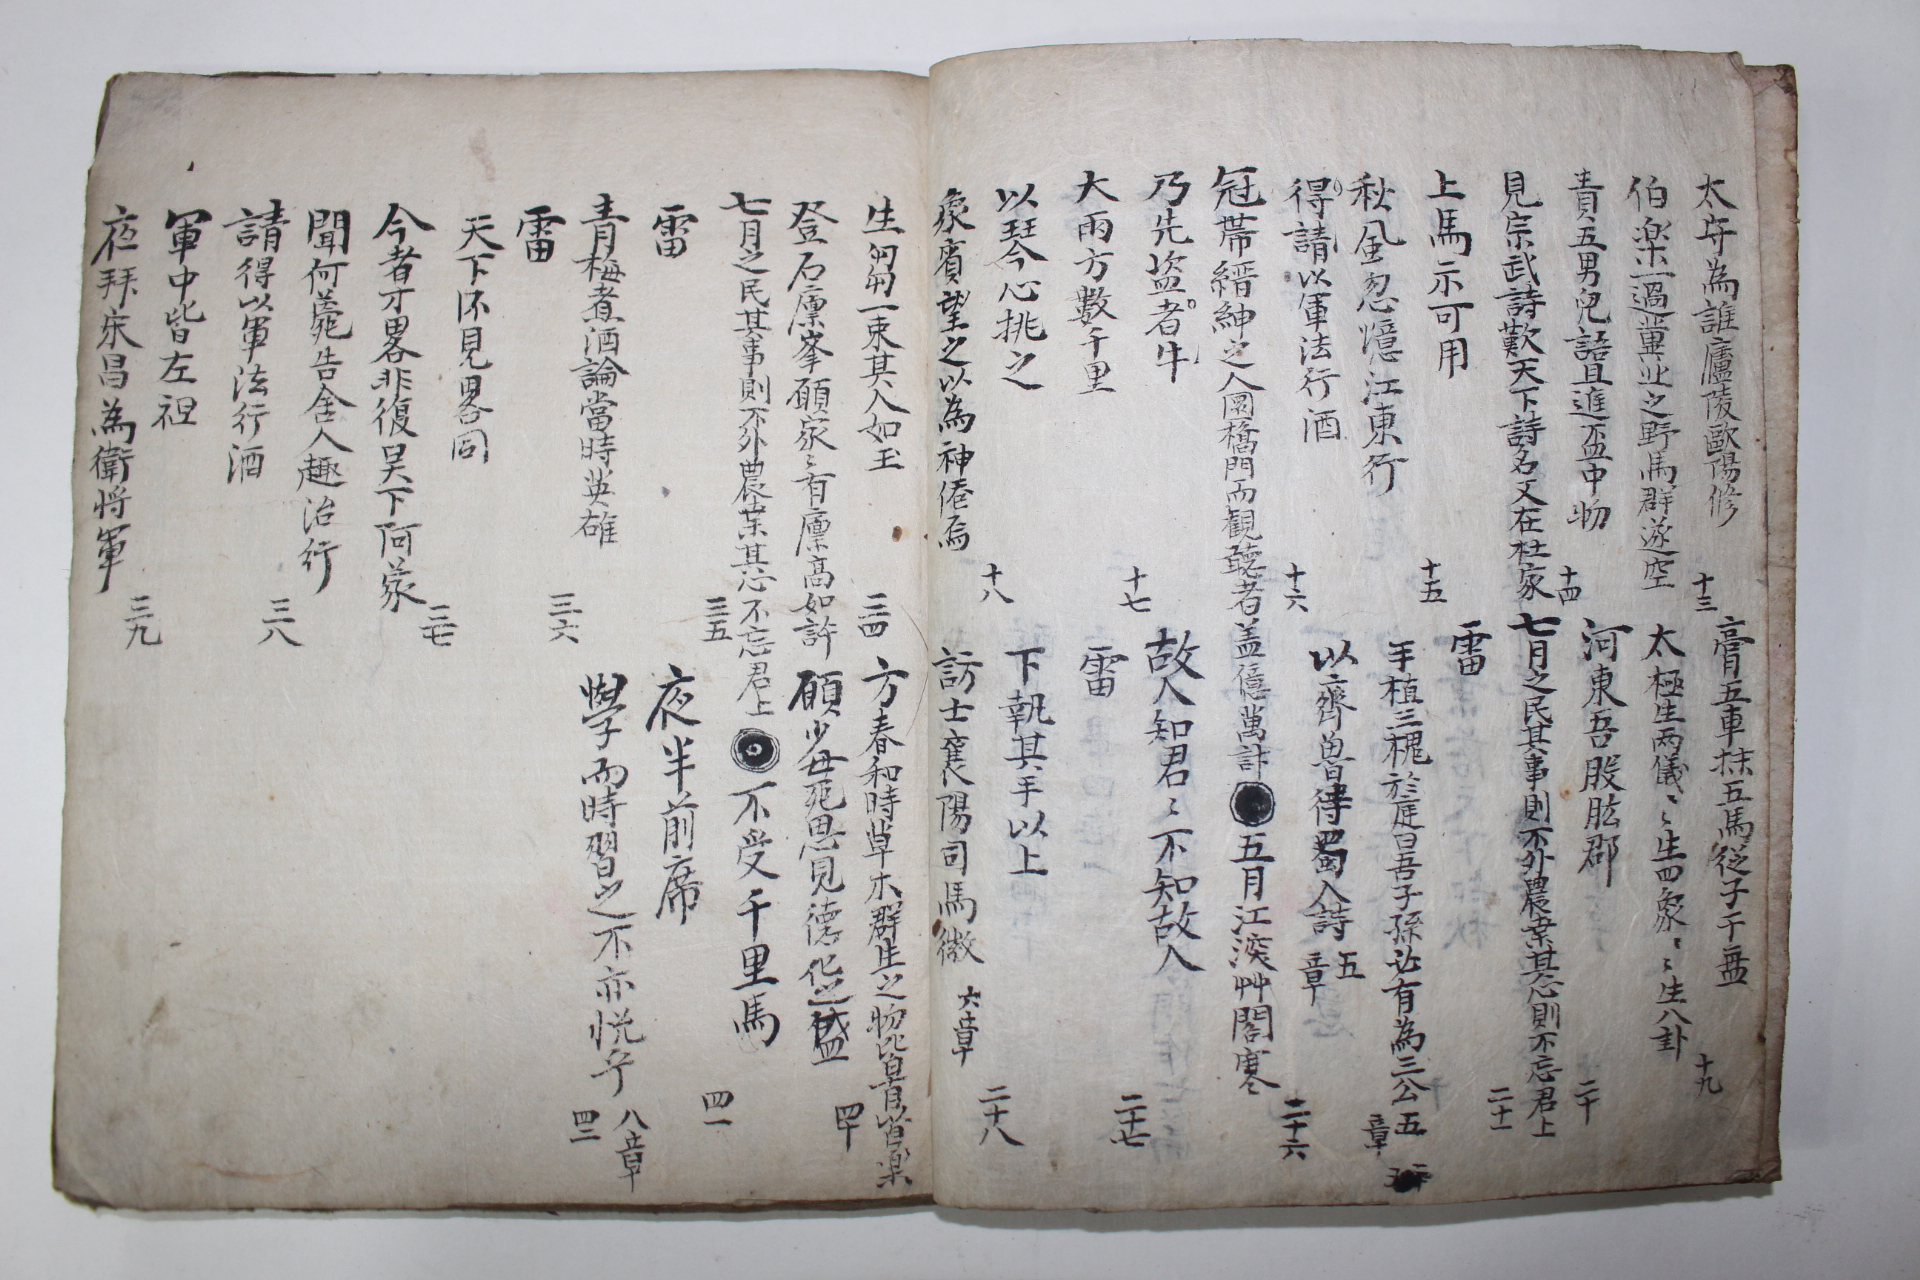 太守為誰廬陵歐陽修
伯樂一過冀北之野馬群遂空
十三
責五男兒語且進盃中物
見宗武詩歎天下詩名又在杜家
十四
上馬示可用
秋風忽憶江東行
十五
得請以軍法行酒
冠帶縉紳之人圜橋門而觀聽者盖億萬計
十六
乃先盜者牛
大雨方數千里
十七
以琴心挑之
象賓望之以為神僊焉
十八
膏五車抹五馬從子于
太極生两儀〻生四象〻生八卦
十九
河東吾股肱郡
七月之民其事則不外農業其心則不忘君上
二十
雷
二十一
手植三槐於庭曰吾子孫必有為三公
五章
以齊魯待蜀人詩
五章
五月江深艸閣寒
二十六
故人知君〻不知故人
雷
二十七
下執其手以上
訪士襄陽司馬徽
六章
二十八
生芻一束其人如玉
登石廩峯願家〻有廩高如許
三四
七月之民其事則不外農業其心不忘君上
雷
三五
青梅煮酒論當時英雄
雷
三六
天下所見畧同
今者才畧非復吳下阿蒙
三七
聞何薨告舍人趣治行
請得以軍法行酒
三八
軍中皆左袒
夜拜宋昌為衛將軍
三九
方春和時草木群生之物皆有以自樂
願少毋死思見德化之盛
四十
不受千里馬
夜半前席
四一
學而時習之不亦悅乎
八章
四二